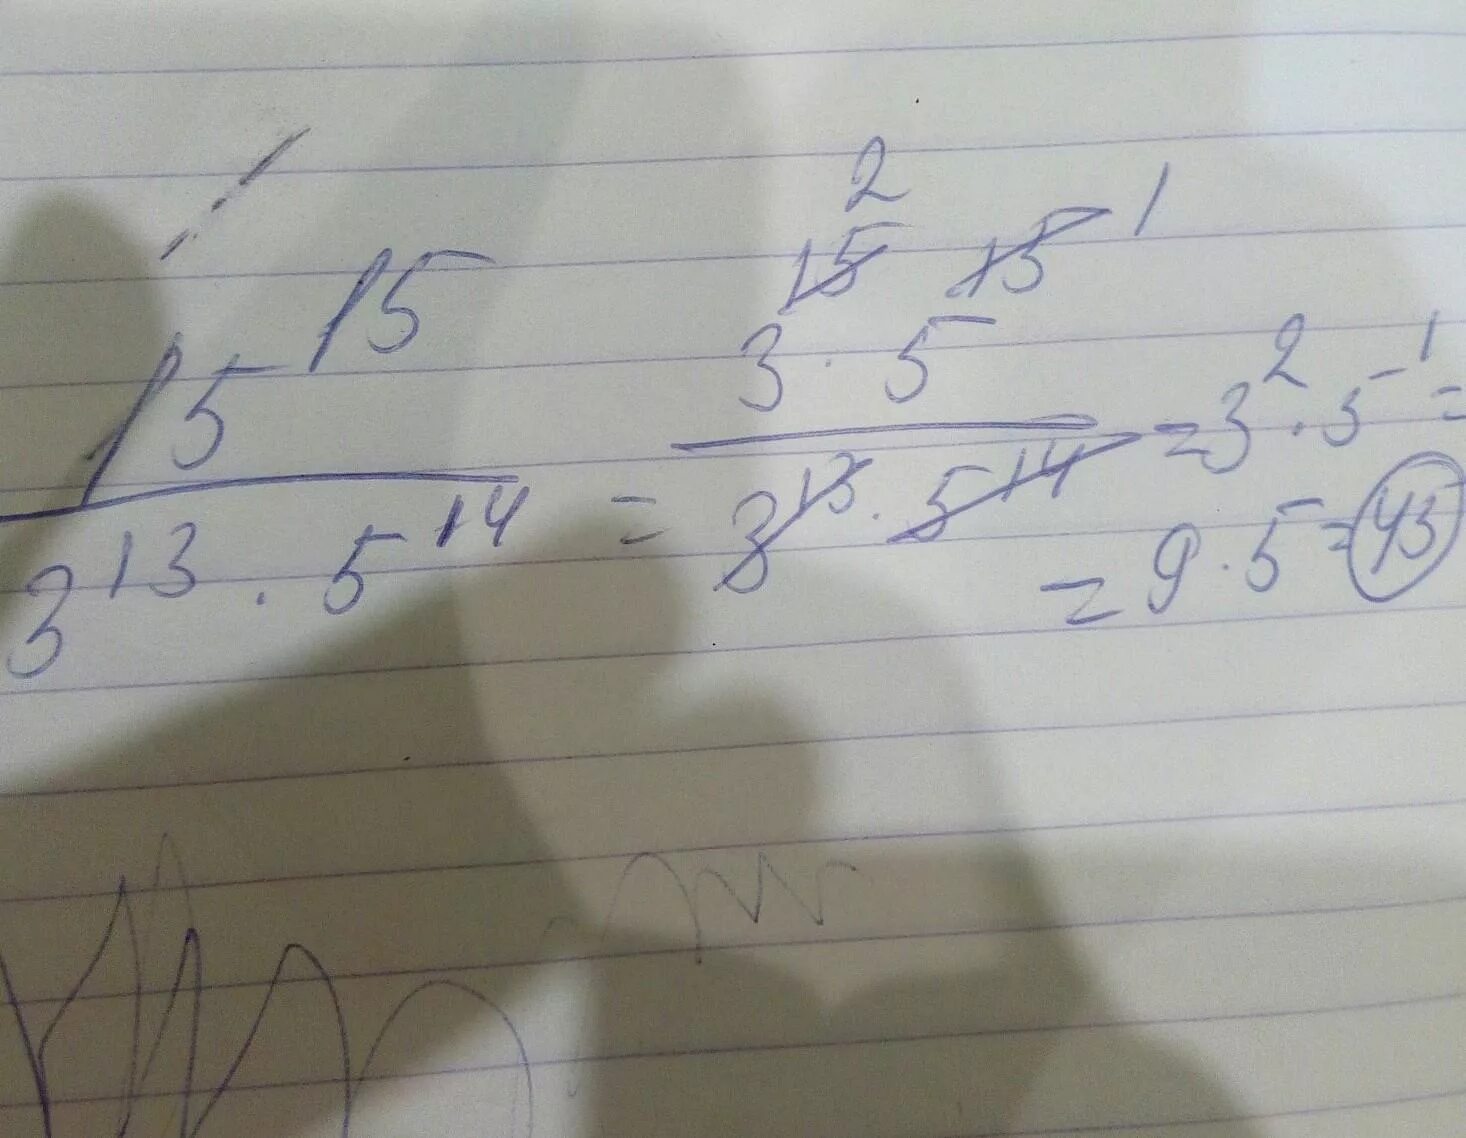 15^15 / (3^13 · 5^14) = (3^15 · 5^15) / (3^13 · 5^14) = 3^2 · 5^1 =
= 9 · 5 = 45